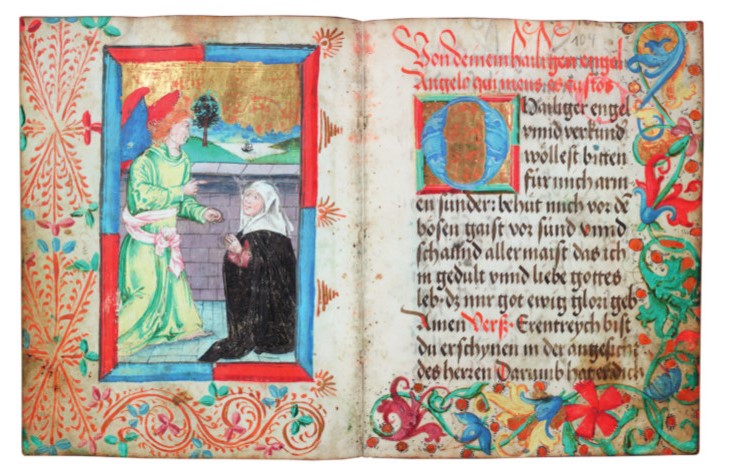 104
Von deinem hailigen engel
Angele qui meus es custos
O Hailiger engel
vnnd verkund
wöllest bitten
für mich arm
en sünder: behüt mich vor dē
bösen gaist vor sünd vnnd
schannd allermaist das ich
in gedult vnnd liebe gottes
leb· dz mir got ewig glori geb·
Amen Verß· Erentreych bist
du erschynen in der angesicht
des herren Darumb hat er dich